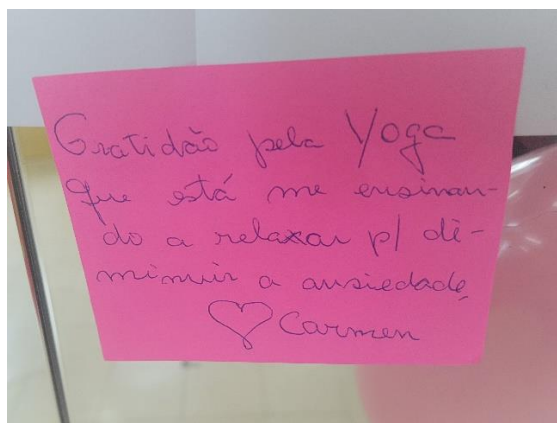 Gratidão pela Yoga
que está me ensinan-
do a relaxar p/ di-
minuir a ansiedade,
♡ Carmen